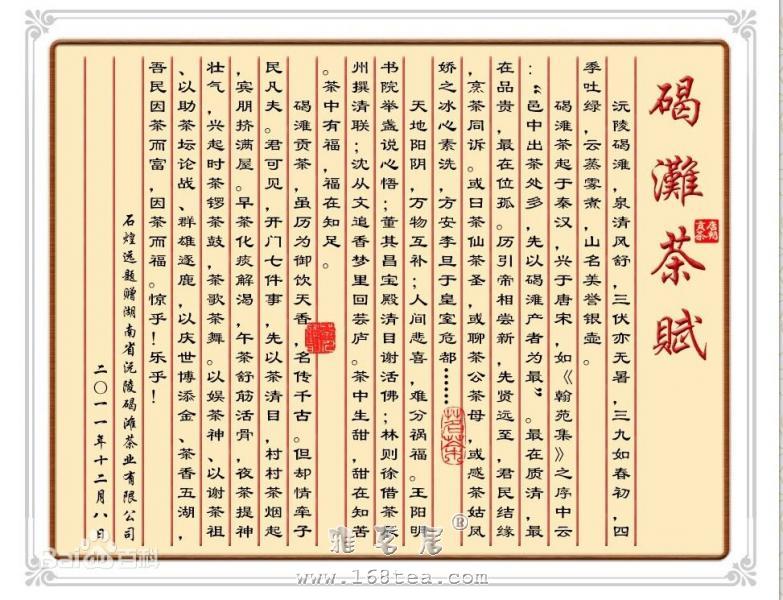 碣滩茶赋
唐朝贡茶
沅陵碣滩，泉清风舒，三伏亦无暑，三九如春初，四
季吐绿，云蒸雾煮，山名美誉银壶。
碣滩茶起于秦汉，兴于唐宋，如《翰苑集》之序中云
：“邑中出茶处多，先以碣滩产者为最”。最在质清，最
在品贵，最在位孤。历引帝相尝新，先贤远至，君民结缘
，烹茶同诉。或曰茶仙茶圣，或聊茶公茶母，或感茶姑凤
娇之冰心素洗，方安李旦于皇室危都……
天地阳阴，万物互补；人间悲喜，难分祸福。王阳明
书院举盏说心悟；董其昌宝殿清目谢活佛；林则徐借茶辰
州撰清联；沈从文追香梦里回芸庐。茶中生甜，甜在知苦
。茶中有福，福在知足。
碣滩贡茶，虽历为御饮天香，名传千古。但却情牵子
民凡夫。君可见，开门七件事，先以茶清目，村村茶烟起
，宾朋挤满屋。早茶化痰解渴，午茶舒筋活骨，夜茶提神
壮气，兴起时茶锣茶鼓，茶歌茶舞。以娱茶神、以谢茶祖
、以助茶坛论战、群雄逐鹿，以庆世博添金、茶香五湖，
吾民因茶而富，因茶而福。惊乎！乐乎！
石煌远题赠湖南省沅陵碣滩茶业有限公司
二〇一一年十二月八日
茗茶
雅茗居®
www.168tea.com
Baidu百科